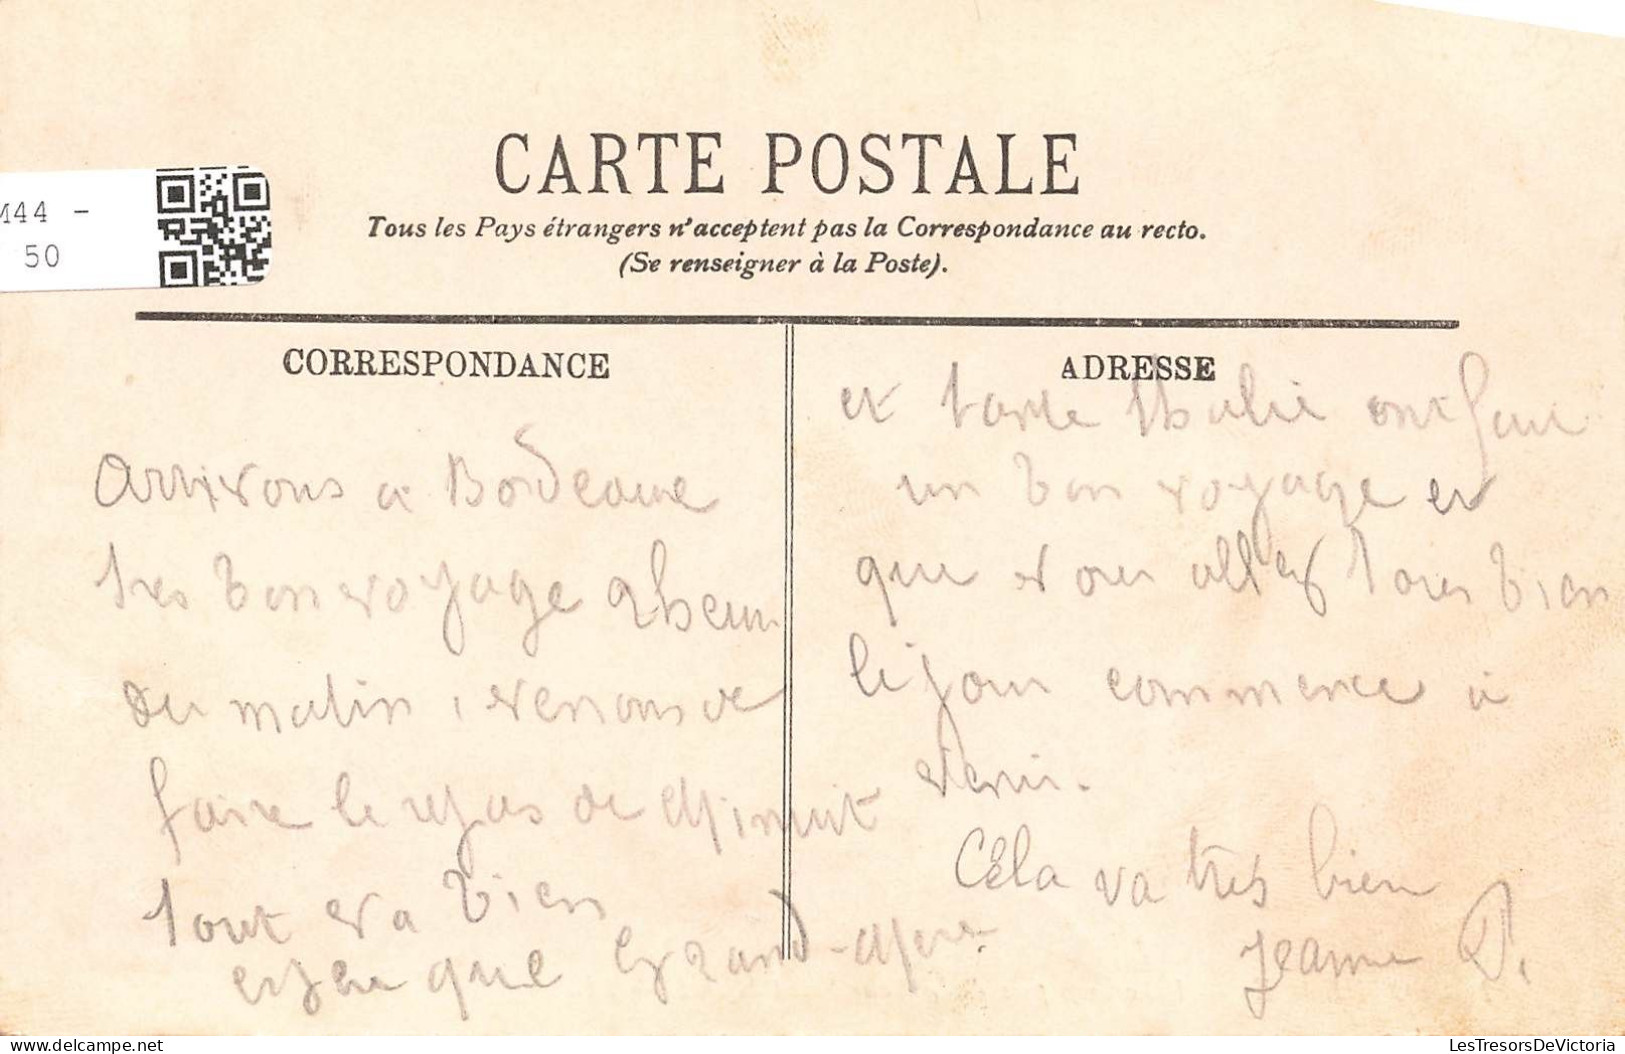 CARTE POSTALE
Tous les Pays étrangers n'acceptent pas la Correspondance au recto.
(Se renseigner à la Poste).
M44 -
50
CORRESPONDANCE
Arrivons a Bordeaux
tres bon voyage 2 heur
du matin, venons de
faire le repas de Minuit
tout va bien
espere que Grand-Mere
ADRESSE
et tante Thalie ont fait
un bon voyage et
que vous allez tous bien
le jour commence a
venir.
Cela va tres bien
Jeanne D.
LesTresorsDeVictoria